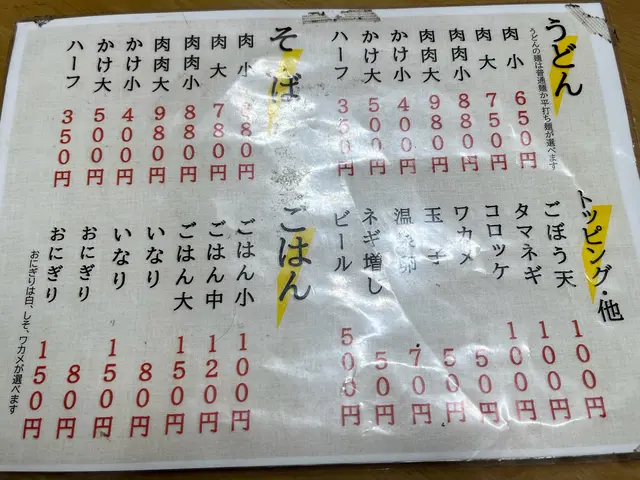 うどん
うどんの麺は普通麺か平打ち麺が選べます
肉 小 650円
肉 大 750円
肉肉小 880円
肉肉大 980円
かけ小 400円
かけ大 500円
ハーフ 350円
そば
肉 小
肉 大
肉肉小 880円
肉肉大 980円
かけ小 400円
かけ大 500円
ハーフ 350円
トッピング・他
ごぼう天 100円
タマネギ 100円
コロッケ 100円
ワカメ 50円
玉子 50円
温泉卵 70円
ネギ増し 50円
ビール 500円
ごはん
ごはん小 100円
ごはん中 120円
ごはん大 150円
いなり 80円
いなり 150円
おにぎり 80円
おにぎり 150円
おにぎりは白、しそ、ワカメが選べます